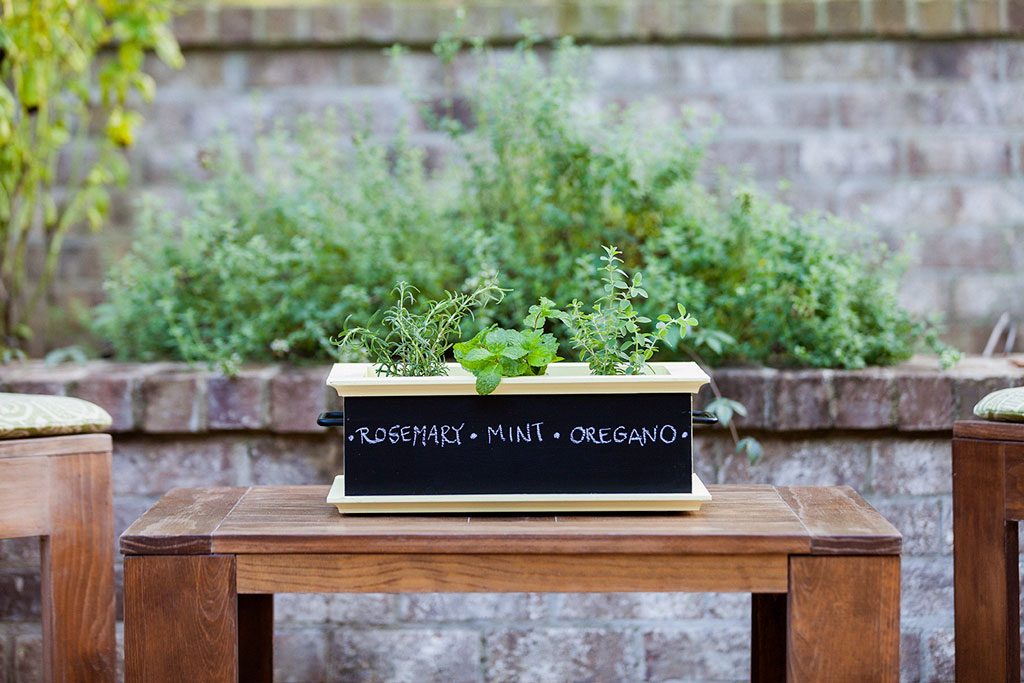 • ROSEMARY • MINT • OREGANO •